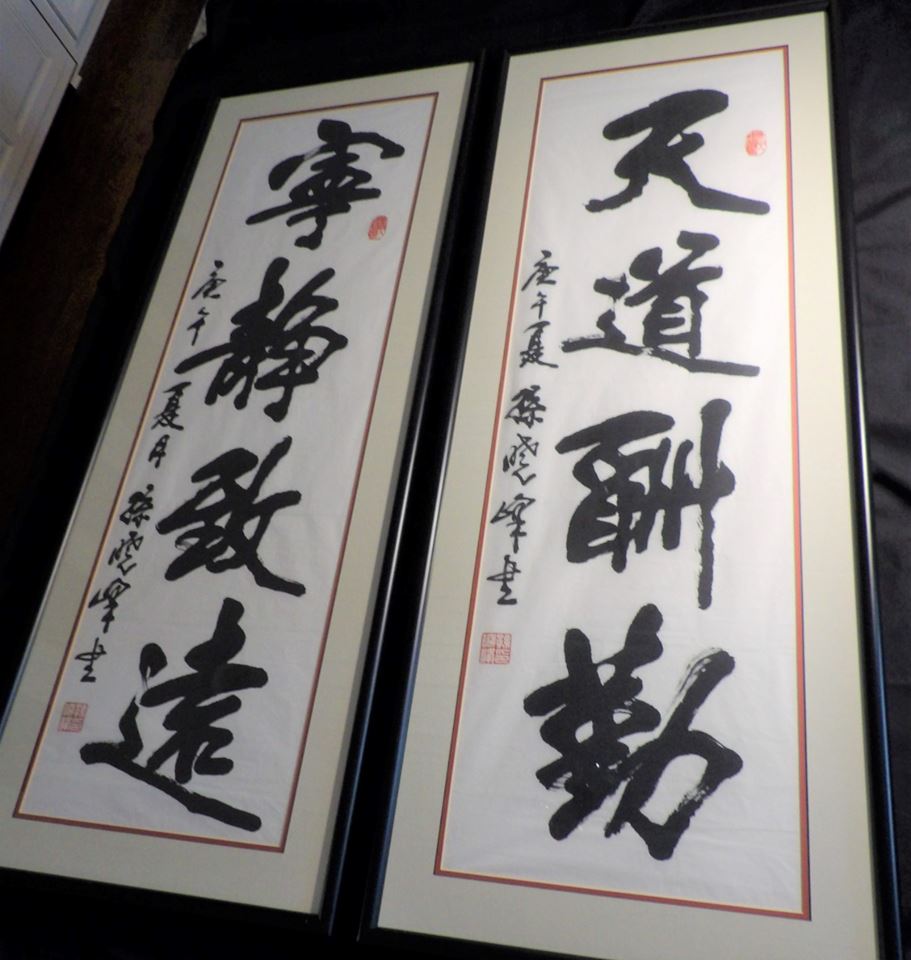 天道酬勤
庚午夏 孫曉峰書
寧靜致遠
庚午夏月 孫曉峰書